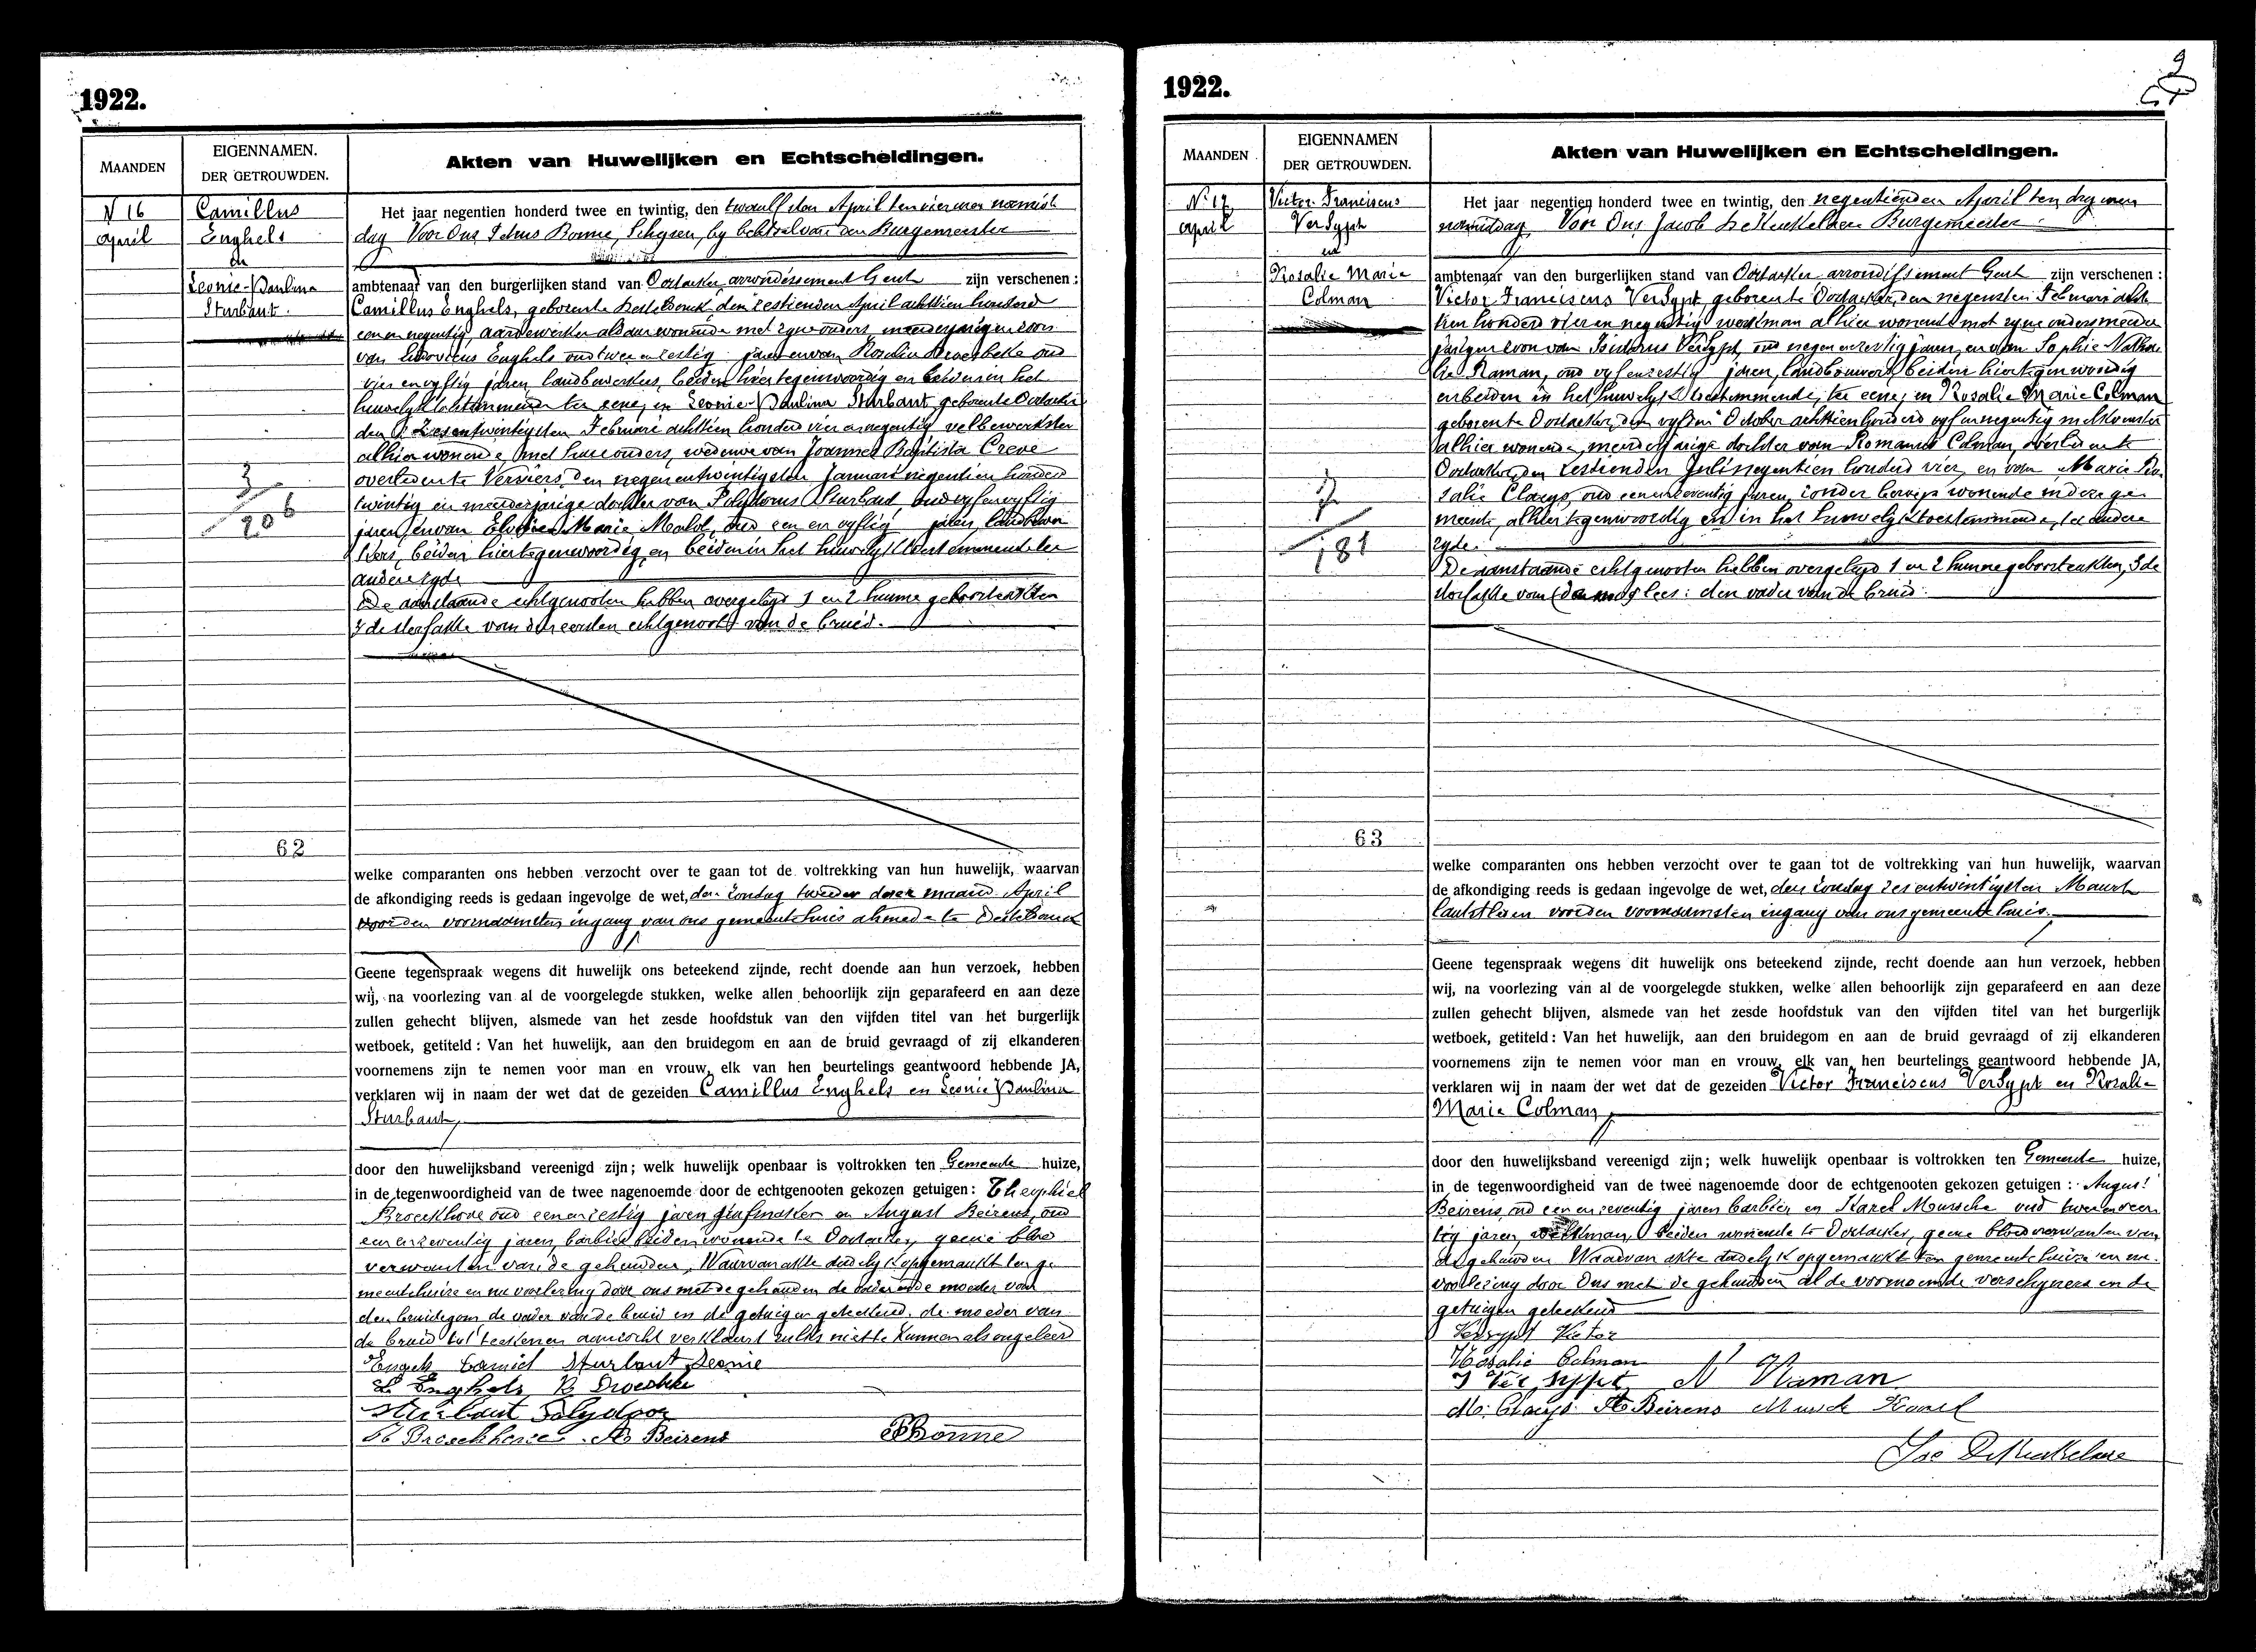 1922.
MAANDEN
EIGENNAMEN.
DER GETROUWDEN.
Akten van Huwelijken en Echtscheidingen.
N 16
april
Camillus
Enghels
en
Leonie-Paulina
Sturbaut.
3
206
62
Het jaar negentien honderd twee en twintig, den twaalfden April ten vier uren namid
dag Voor Ons Petrus Bonne, Schepen, by belet van den Burgemeester
ambtenaar van den burgerlijken stand van Oostacker, arrondissement Gent zijn verschenen :
Camillus Enghels, geboren te Destelbonck, den zestienden April achttien honderd
een en negentig, aardewerker aldaar wonende met zyne ouders, meerderjarigen zoon
van Ludovicus Enghels oud twee en zestig jaren en van Rosalia oud
vier en vyftig jaren, landbewerkers, beiden hier tegenwoordig en beiden in het
huwelyk toestemmende ter eene, en Leonie-Paulina Sturbaut geboren te Oostacker
den zesentwintigsten Februari achttien honderd vier en negentig velbewerkster
alhier wonende, met hare ouders, weduwe van Joannes Baptista Creve
overleden te Verviers den negenentwintigsten Januari negentien honderd
twintig en meerderjarige dochter van Polydorus Sturbaut, oud vyfenvyftig
jaren, en van Marie oud een en vyftig jaren, landbouw
kers, beiden hier tegenwoordig en beiden in het huwelyk toestemmende ter
andere zyde
De aanstaande echtgenooten hebben overgelegd 1 en 2 hunne geboorteakten
3 de sterfakte van den eersten echtgenoot van de bruid.
welke comparanten ons hebben verzocht over te gaan tot de voltrekking van hun huwelijk, waarvan
de afkondiging reeds is gedaan ingevolge de wet, den zondag tweeden dezer maand April
voor den voornaamsten ingang van ons gemeentehuis alsmede te Destelbonck
Geene tegenspraak wegens dit huwelijk ons beteekend zijnde, recht doende aan hun verzoek, hebben
wij, na voorlezing van al de voorgelegde stukken, welke allen behoorlijk zijn geparafeerd en aan deze
zullen gehecht blijven, alsmede van het zesde hoofdstuk van den vijfden titel van het burgerlijk
wetboek, getiteld : Van het huwelijk, aan den bruidegom en aan de bruid gevraagd of zij elkanderen
voornemens zijn te nemen voor man en vrouw, elk van hen beurtelings geantwoord hebbende JA,
verklaren wij in naam der wet dat de gezeiden Camillus Enghels en Leonie Paulina
Sturbaut,
door den huwelijksband vereenigd zijn; welk huwelijk openbaar is voltrokken ten Gemeente huize,
in de tegenwoordigheid van de twee nagenoemde door de echtgenooten gekozen getuigen : Theophiel
Broeckhove oud een en zestig jaren en August Beirens, oud
een en zeventig jaren, barbier beiden wonende te Oostacker, geene bloed
verwanten van de gehuwden, Waarvan akte dadelyk opgemaakt ten ge
meentehuize en na voorlezing door ons met de gehuwden de vader en de moeder van
den bruidegom de vader van de bruid en de getuigen geteekend, de moeder van
de bruid tot teekenen aanzocht verklaart zulks niet te kunnen als ongeleerd
Engels Camiel Sturbaut Leonie
L Enghels R
Sturbaut Polydoor
Th Broeckhove A Beirens PBonne
1922.
9
MAANDEN
EIGENNAMEN
DER GETROUWDEN.
Akten van Huwelijken en Echtscheidingen.
N 17
april
Victor Franciscus
VerSypt
en
Rosalie Marie
Colman
181
63
Het jaar negentien honderd twee en twintig, den negentienden April ten dry uren
namiddag Voor Ons Jacob De Burgemeester
ambtenaar van den burgerlijken stand van Oostacker arrondissement Gent zijn verschenen :
Victor Franciscus VerSypt, geboren te Oostacker, den negensten Februari acht
tien honderd vier en negentig werkman alhier wonende met zyne ouders meerder
jarigen zoon van Isidorus VerSypt, oud negen en zestig jaren, en van Sophie Natha
lie Raman, oud vyf en zestig jaren, landbouwers beiden hier tegenwoordig
en beiden in het huwelyk toestemmende, ter eene, en Rosalie Marie Colman
geboren te Oostacker, den vyfden October achttien honderd vyf en negentig
alhier wonende, meerderjarige dochter van Romanus Colman, overleden te
Oostacker, den zestienden Juli negentien honderd vier, en van Marie Ro
salie Claeys, oud een en zeventig jaren, zonder beroep wonende in deze ge
meente, alhier tegenwoordig en in het huwelyk toestemmende, ter andere
zyde.
De aanstaande echtgenooten hebben overgelegd 1 en 2 hunne geboorteakten, 3 de
sterfakte van lees: den vader van de bruid.
welke comparanten ons hebben verzocht over te gaan tot de voltrekking van hun huwelijk, waarvan
de afkondiging reeds is gedaan ingevolge de wet, den zondag zesentwintigsten Maart
laatstleden voor den voornaamsten ingang van ons gemeentehuis.
Geene tegenspraak wegens dit huwelijk ons beteekend zijnde, recht doende aan hun verzoek, hebben
wij, na voorlezing van al de voorgelegde stukken, welke allen behoorlijk zijn geparafeerd en aan deze
zullen gehecht blijven, alsmede van het zesde hoofdstuk van den vijfden titel van het burgerlijk
wetboek, getiteld : Van het huwelijk, aan den bruidegom en aan de bruid gevraagd of zij elkanderen
voornemens zijn te nemen voor man en vrouw, elk van hen beurtelings geantwoord hebbende JA,
verklaren wij in naam der wet dat de gezeiden Victor Franciscus VerSypt en Rosalie
Marie Colman,
door den huwelijksband vereenigd zijn; welk huwelijk openbaar is voltrokken ten Gemeente huize,
in de tegenwoordigheid van de twee nagenoemde door de echtgenooten gekozen getuigen : August
Beirens, oud een en zeventig jaren barbier en Karel Mussche oud twee en veer
tig jaren, werkman, beiden wonende te Oostacker, geene bloedverwanten van
de gehuwden Waarvan akte dadelyk opgemaakt ten gemeentehuize en na
voorlezing door Ons met de gehuwden al de voornoemde verschyners en de
getuigen geteekend
Versypt Victor
Rosalie Colman
I Versypt N Raman
M. Claeys A Beirens Mussche Karel